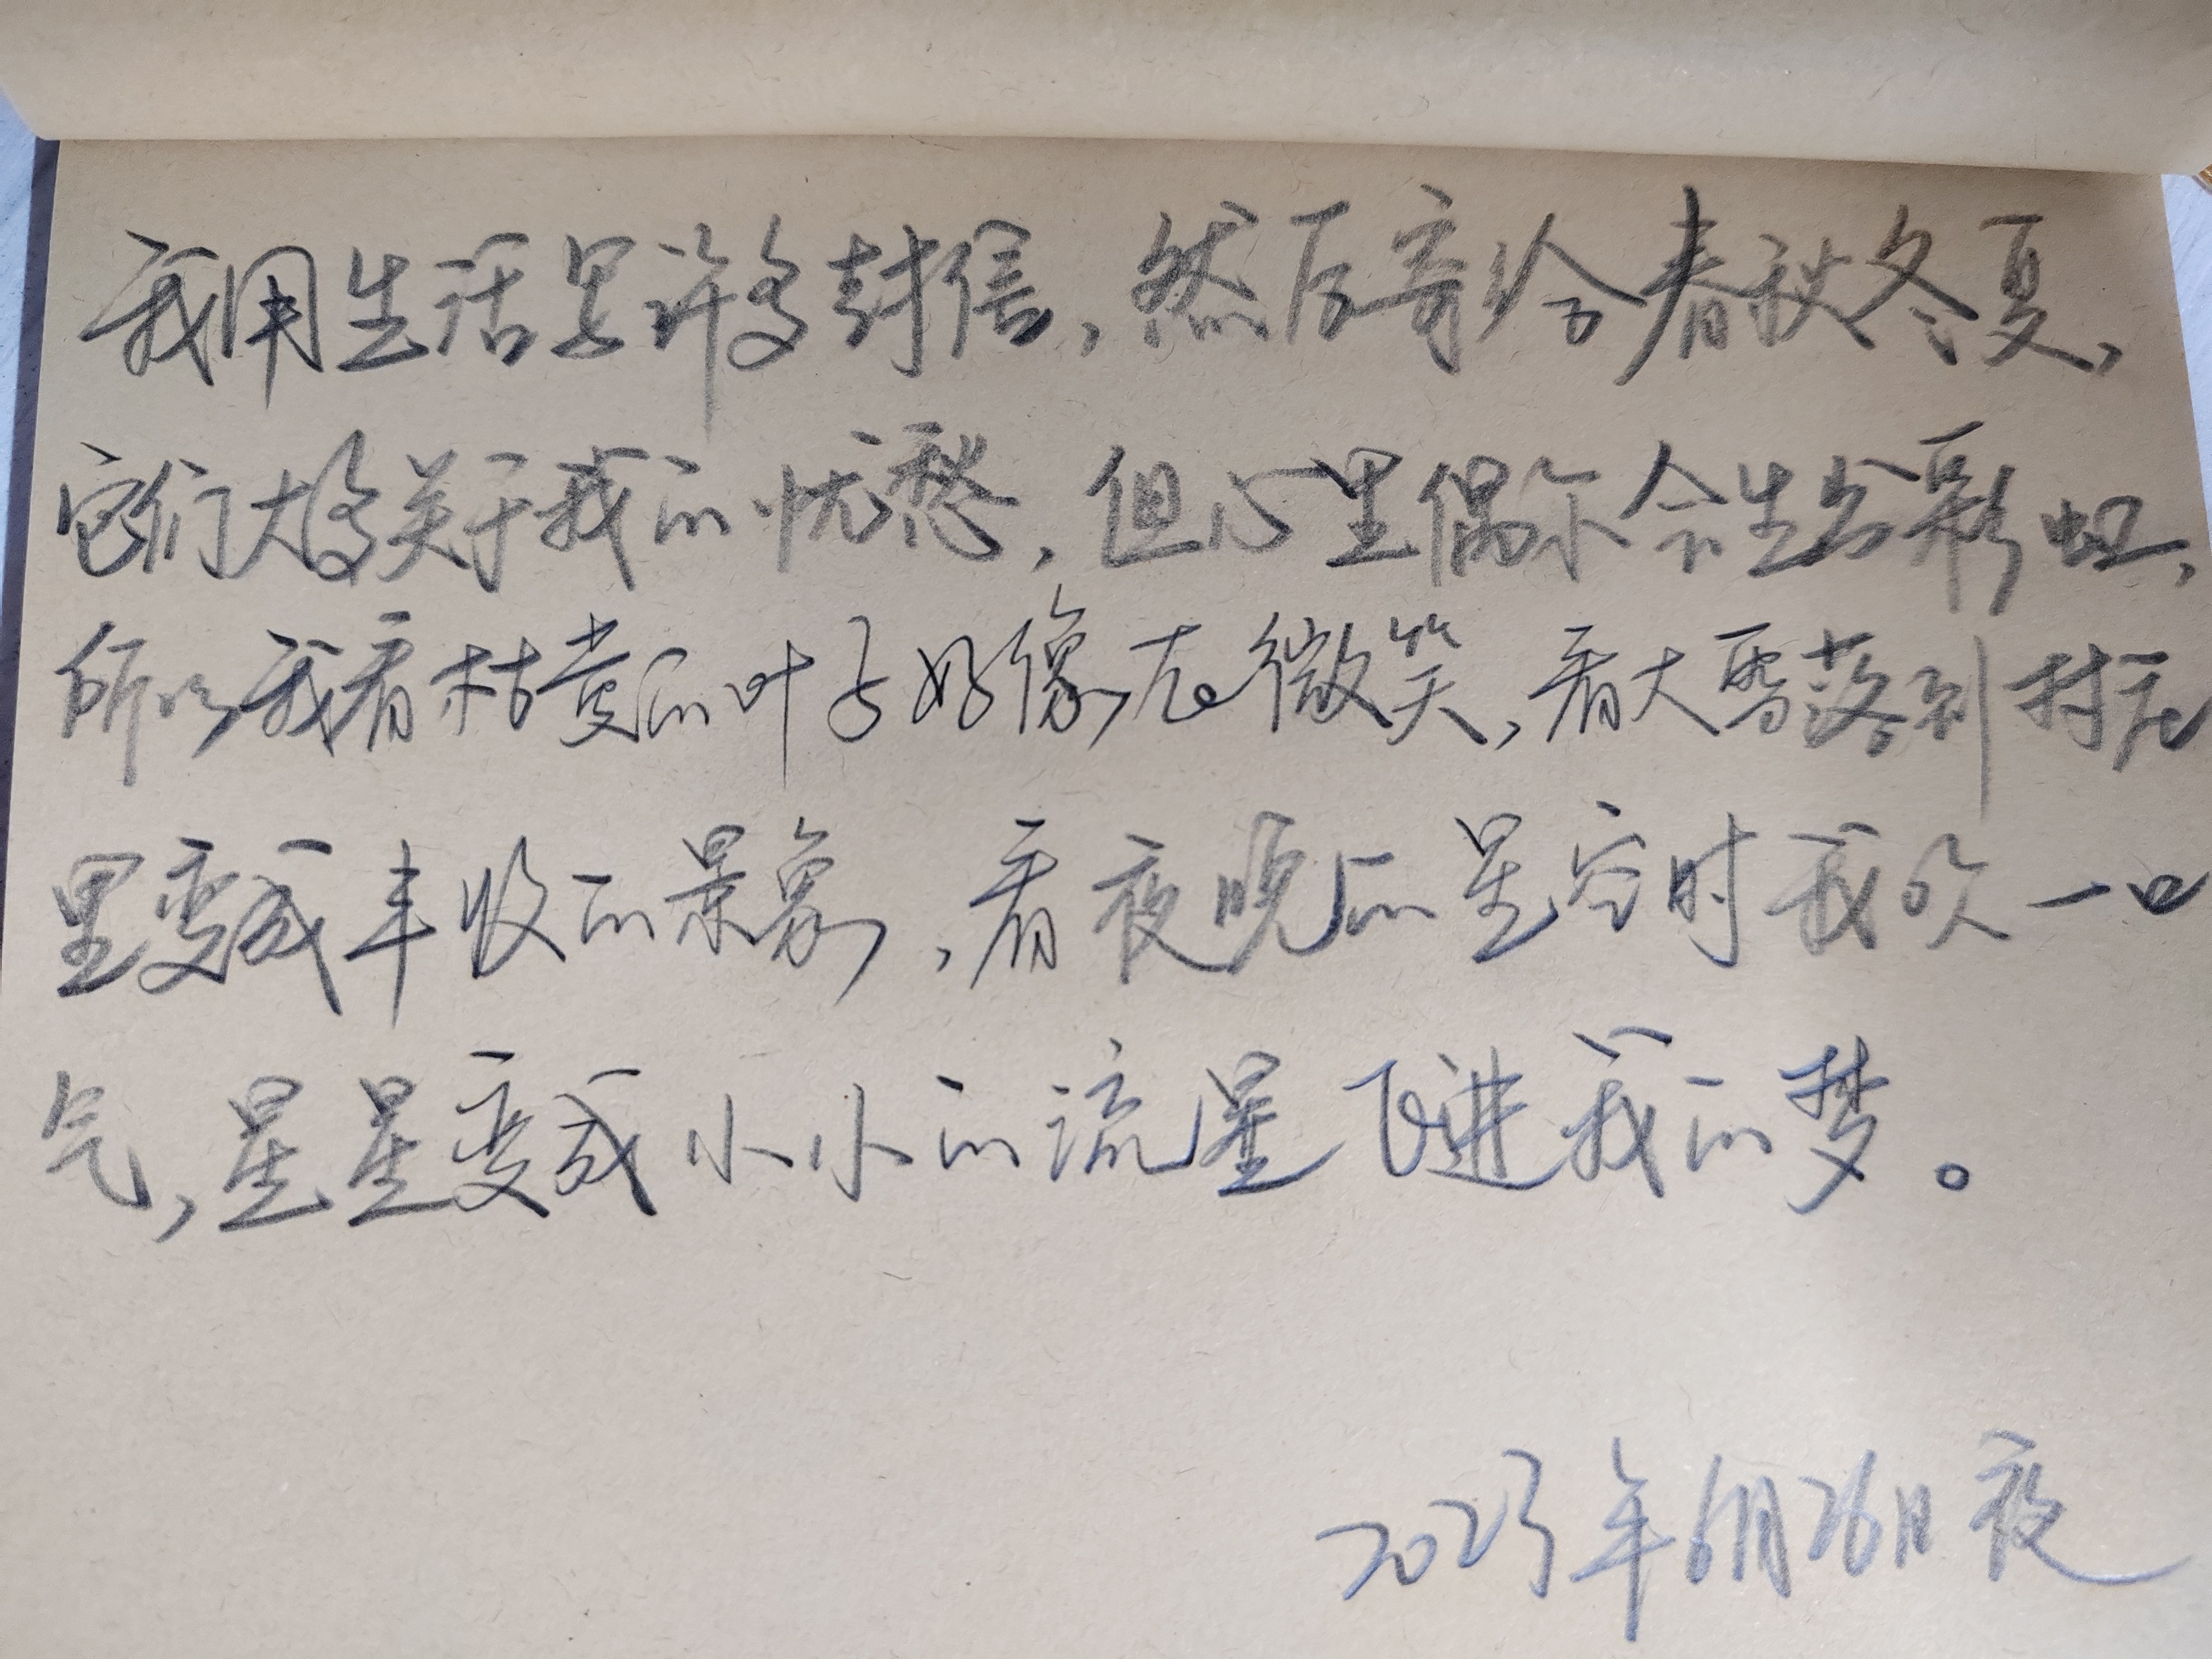 我用生活写许多封信，然后寄给春秋冬夏，
它们大多关于我的忧愁，但心里偶尔会生出彩虹，
所以我看枯黄的叶子好像在微笑，看大雪落到村庄
里变成丰收的景象，看夜晚的星空时我吹一口
气，星星变成小小的流星飞进我的梦。
2023年6月26日夜